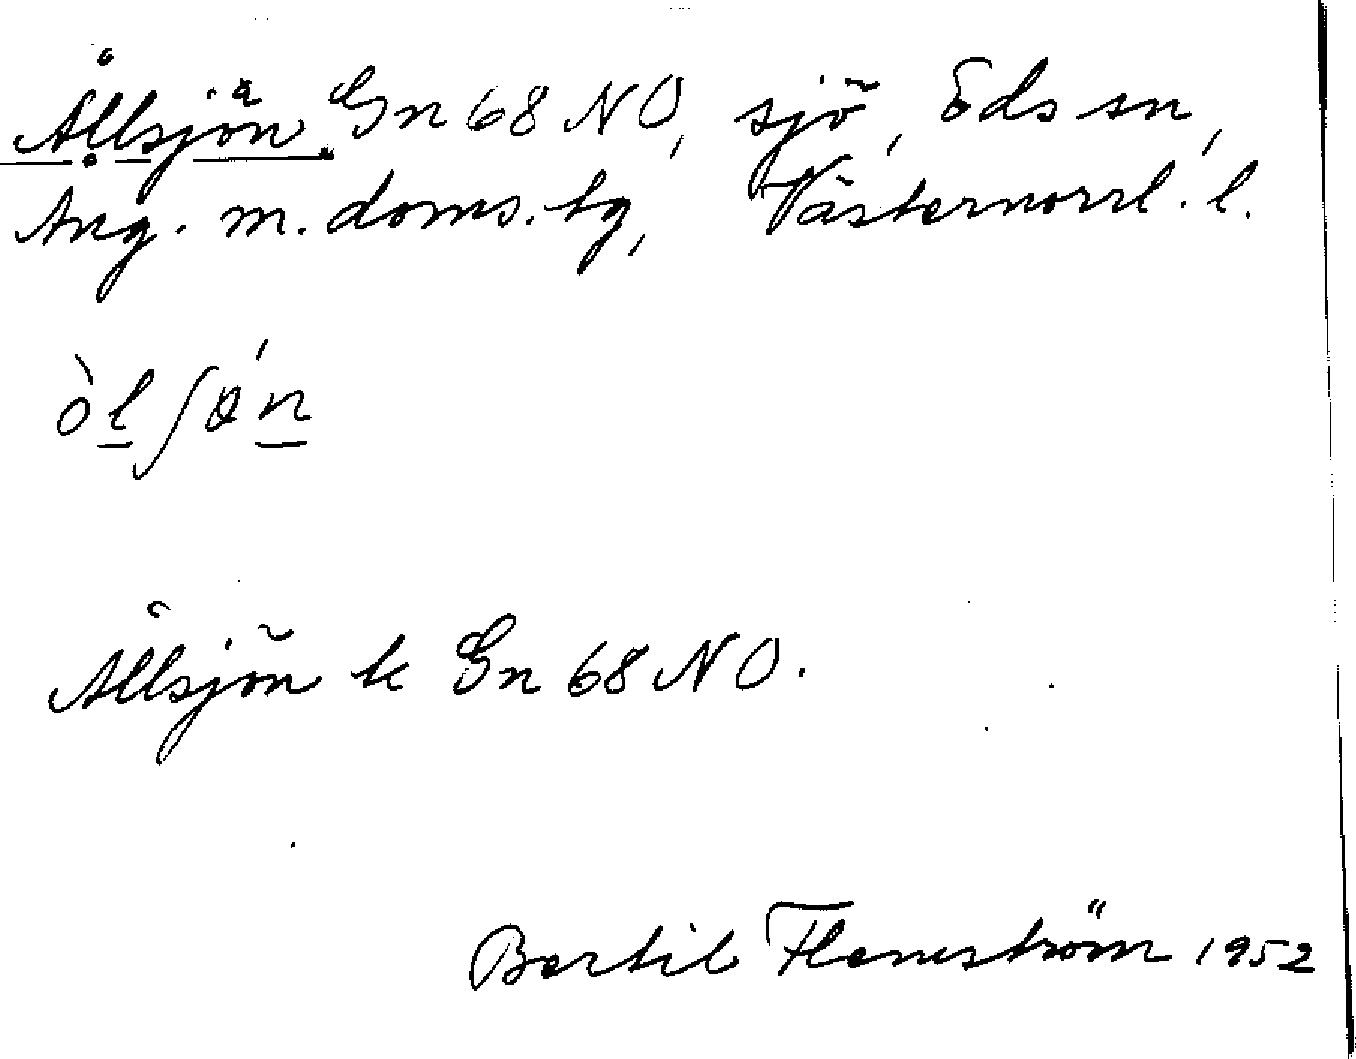 Ållsjön Gn 68 NO, sjö, Eds sn,
Ång. m. doms. tg, Västernorrl. l.
òlʃøn
Ållsjön k Gn 68 NO.
Bertil Flemström 1952